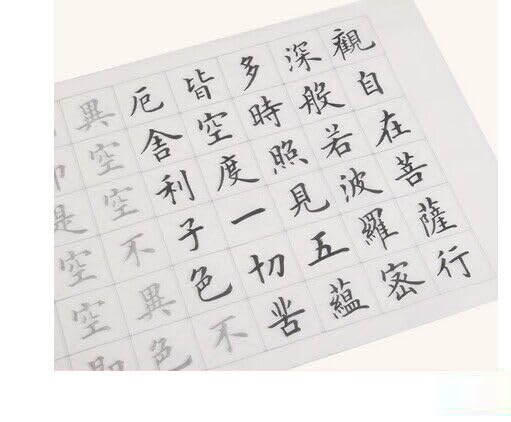 觀自在菩薩行
深般若波羅密
多時照見五蘊
皆空度一切苦
厄舍利子色不
異空空不異色
是空空即